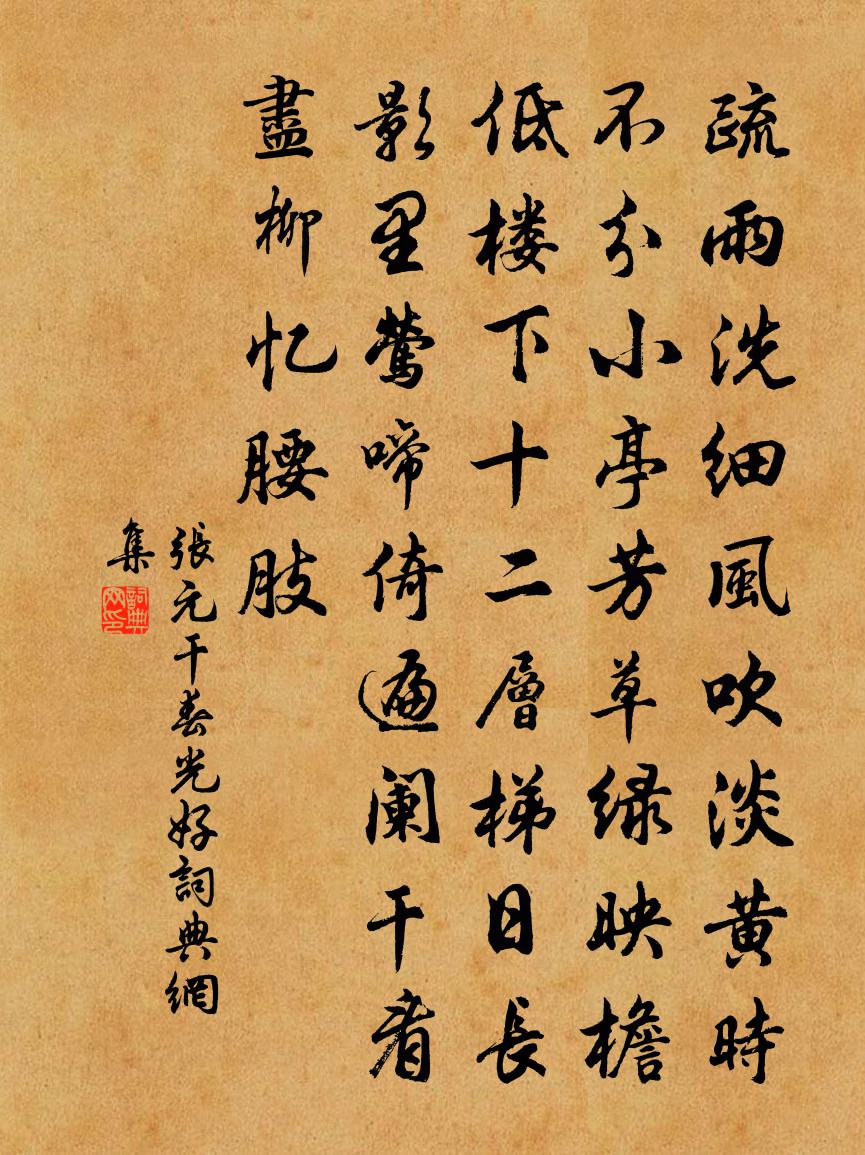 疏雨洗細風吹淡黄時
不分小亭芳草绿映檐
低楼下十二層梯日長
影里鶯啼倚遍阑干看
盡柳忆腰肢
張元干春光好詞典網
集
詞典
网印